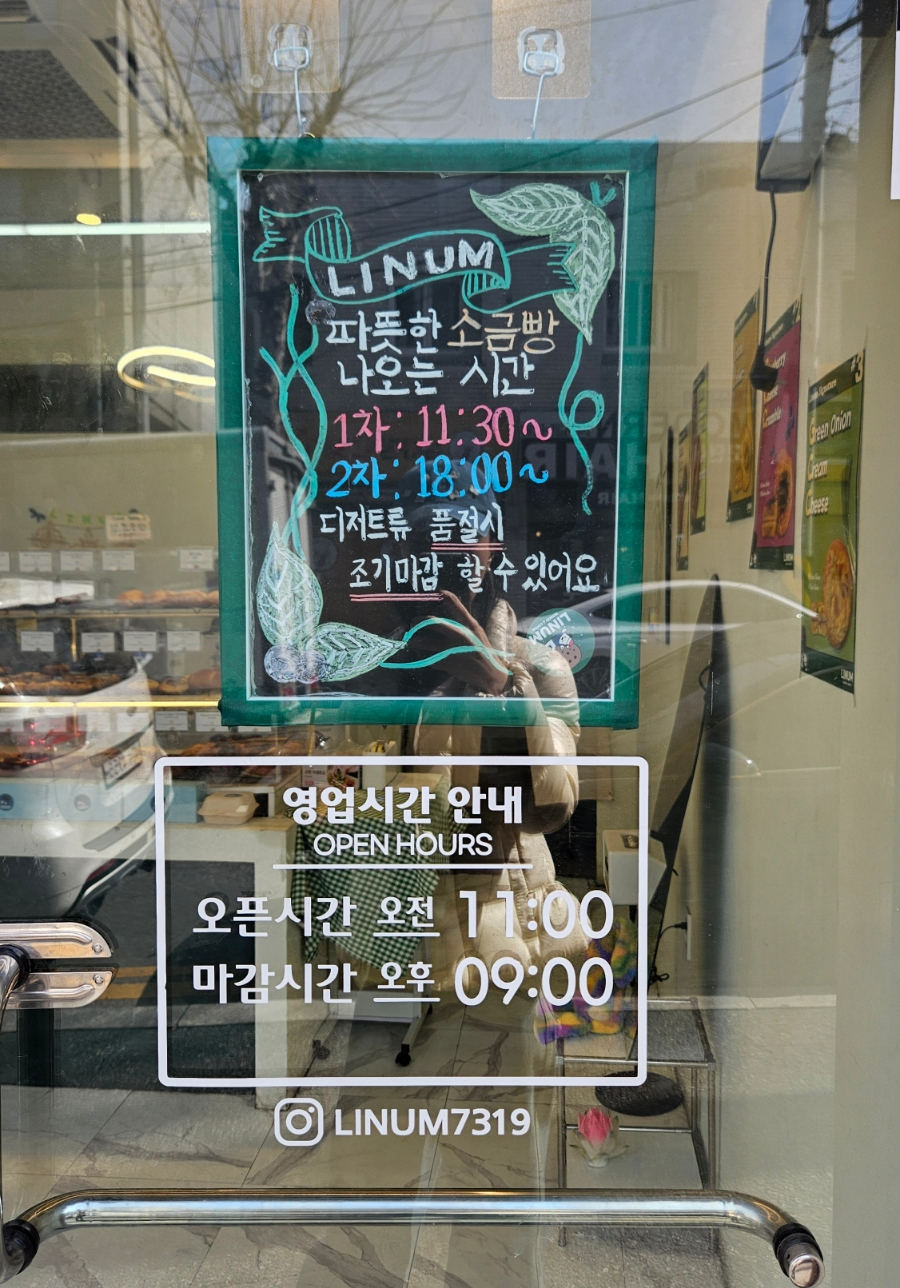 LINUM
따뜻한 소금빵
나오는 시간
1차: 11:30~
2차: 18:00~
디저트류 품절시
조기마감 할 수 있어요
LINUM
영업시간 안내
OPEN HOURS
오픈시간 오전 11:00
마감시간 오후 09:00
LINUM7319
Green Onion
Cream
Cheese